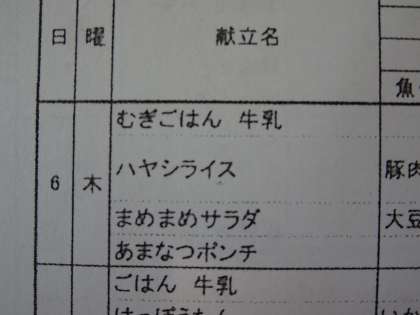 日 曜 献立名
魚
むぎごはん 牛乳
6 木 ハヤシライス 豚肉
まめまめサラダ 大豆
あまなつポンチ
ごはん 牛乳